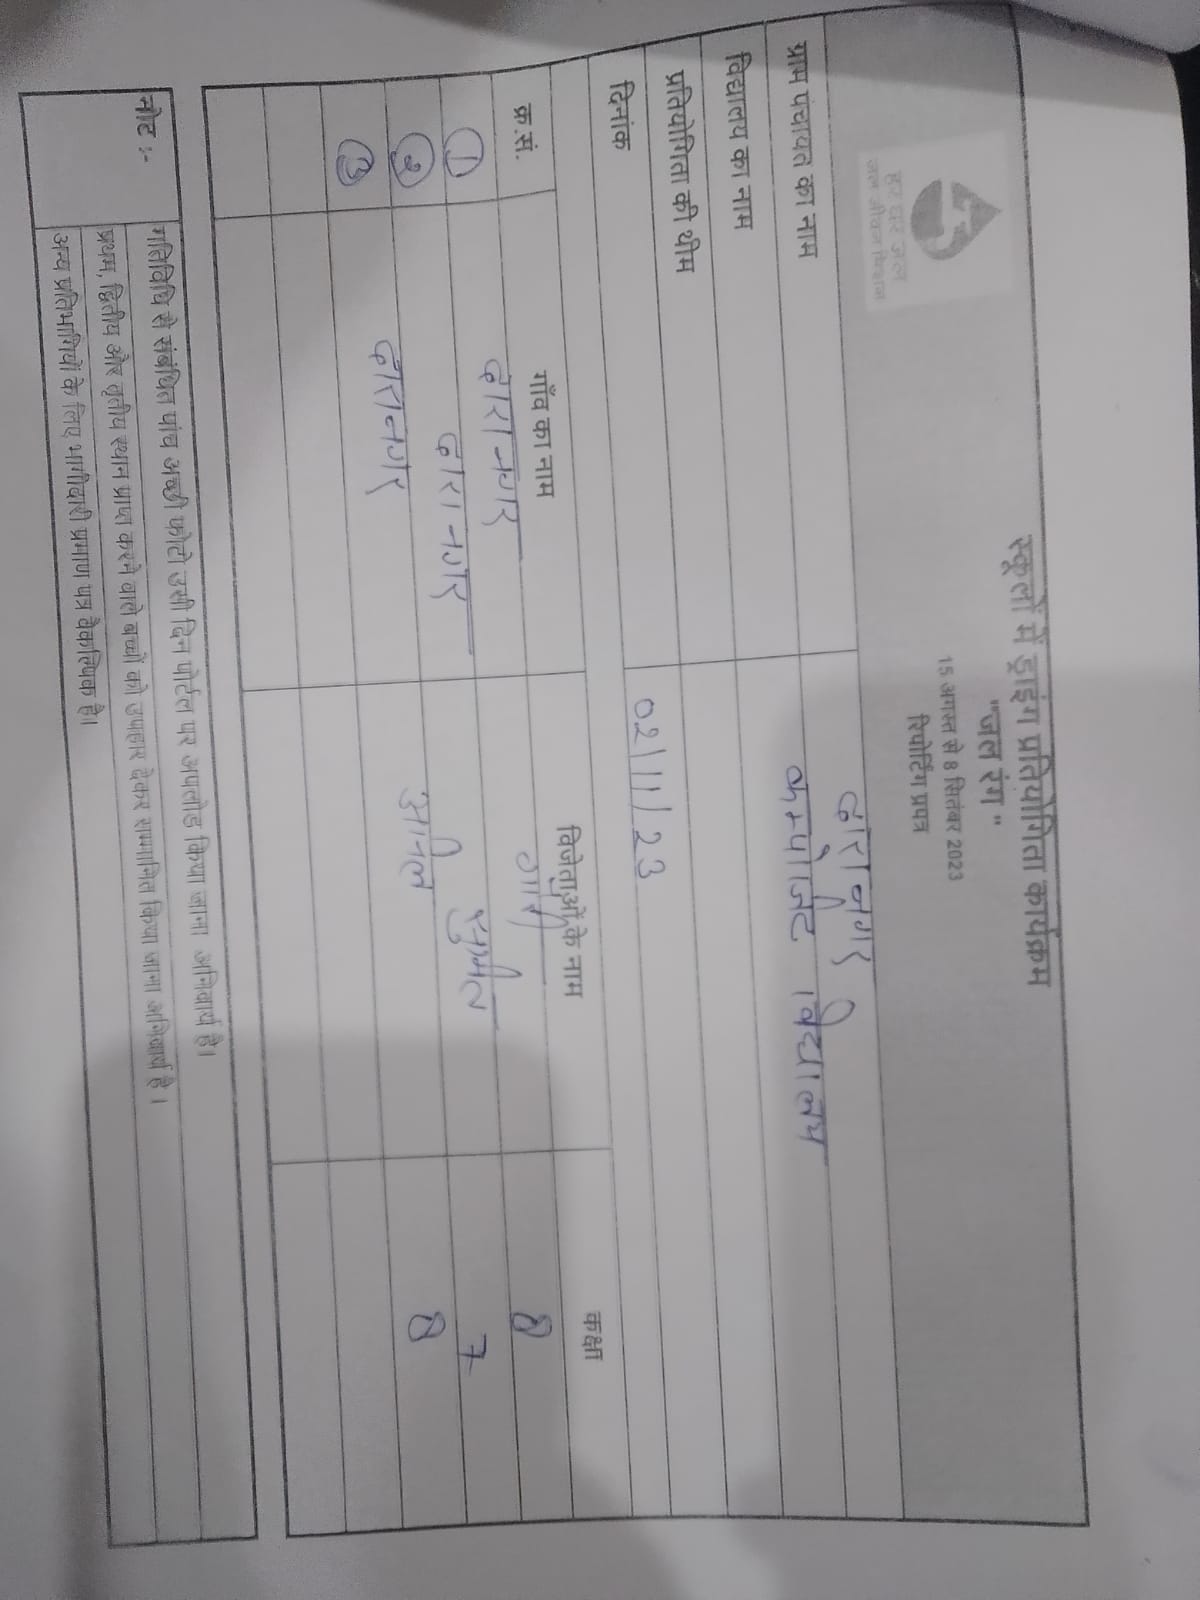 हर घर जल
जल जीवन मिशन
स्कूलों में ड्राइंग प्रतियोगिता कार्यक्रम
"जल रंग"
15 अगस्त से 8 सितंबर 2023
रिपोर्टिंग प्रपत्र
ग्राम पंचायत का नाम द्वारानगर
विद्यालय का नाम कम्पोजिट विद्यालय
प्रतियोगिता की थीम
दिनांक 02/11/23
क्र.सं. गाँव का नाम विजेताओं के नाम कक्षा
1 द्वारानगर 8
2 द्वारानगर सुमित 7
3 द्वारानगर 8
नोट :- गतिविधि से संबंधित पांच अच्छी फोटो उसी दिन पोर्टल पर अपलोड किया जाना अनिवार्य है।
प्रथम, द्वितीय और तृतीय स्थान प्राप्त करने वाले बच्चों को उपहार देकर सम्मानित किया जाना अनिवार्य है।
अन्य प्रतिभागियों के लिए भागीदारी प्रमाण पत्र वैकल्पिक है।